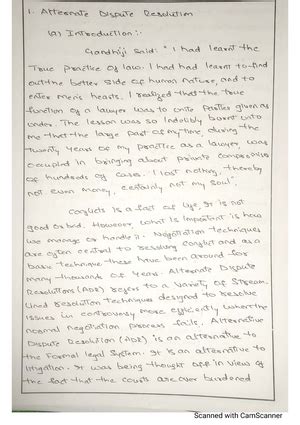 1. Alternate Dispute Resolution
(a) Introduction :-
Gandhiji said: "I had learnt the
True practice of law. I had learnt to find
out the better side of human nature, and to
enter men's hearts. I realized that the true
function of a lawyer was to unite parties given as
under. The lesson was so indelibly burnt unto
me that the large part of my time, during the
twenty years of my practice as a lawyer, was
occupied in bringing about private compromises
of hundreds of cases. I lost nothing, thereby
not even money, certainly not my soul".
Conflicts is a fact of life. It is not
good or bad. However, what is important is how
we manage or handle it. Negotiation techniques
are often central to resolving conflict and as a
basic technique these have been around for
many thousands of years. Alternate Dispute
Resolutions (ADR) refers to a variety of stream
lined resolution techniques designed to resolve
issues in controversy more efficiently when the
normal negotiation process fails. Alternative
Dispute Resolution (ADR) is an alternative to
the Formal legal System. It is an alternative to
litigation. It was being thought off in view of
the fact that the courts are over burdened
Scanned with CamScanner